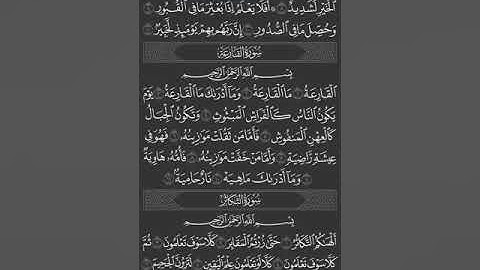 ٱلۡخَيۡرِ لَشَدِيدٌ ۞ أَفَلَا يَعۡلَمُ إِذَا بُعۡثِرَ مَا فِي ٱلۡقُبُورِ
وَحُصِّلَ مَا فِي ٱلصُّدُورِ إِنَّ رَبَّهُم بِهِمۡ يَوۡمَئِذٖ لَّخَبِيرُۢ
سُورَةُ القَارِعَةِ
بِسۡمِ ٱللَّهِ ٱلرَّحۡمَٰنِ ٱلرَّحِيمِ
ٱلۡقَارِعَةُ مَا ٱلۡقَارِعَةُ وَمَآ أَدۡرَىٰكَ مَا ٱلۡقَارِعَةُ يَوۡمَ
يَكُونُ ٱلنَّاسُ كَٱلۡفَرَاشِ ٱلۡمَبۡثُوثِ وَتَكُونُ ٱلۡجِبَالُ
كَٱلۡعِهۡنِ ٱلۡمَنفُوشِ فَأَمَّا مَن ثَقُلَتۡ مَوَٰزِينُهُۥ فَهُوَ فِي
عِيشَةٖ رَّاضِيَةٖ وَأَمَّا مَنۡ خَفَّتۡ مَوَٰزِينُهُۥ فَأُمُّهُۥ هَاوِيَةٞ
وَمَآ أَدۡرَىٰكَ مَا هِيَهۡ نَارٌ حَامِيَةُۢ
سُورَةُ التَّكَاثُرِ
بِسۡمِ ٱللَّهِ ٱلرَّحۡمَٰنِ ٱلرَّحِيمِ
أَلۡهَىٰكُمُ ٱلتَّكَاثُرُ حَتَّىٰ زُرۡتُمُ ٱلۡمَقَابِرَ كَلَّا سَوۡفَ تَعۡلَمُونَ ثُمَّ
كَلَّا سَوۡفَ تَعۡلَمُونَ كَلَّا لَوۡ تَعۡلَمُونَ عِلۡمَ ٱلۡيَقِينِ لَتَرَوُنَّ ٱلۡجَحِيمَ